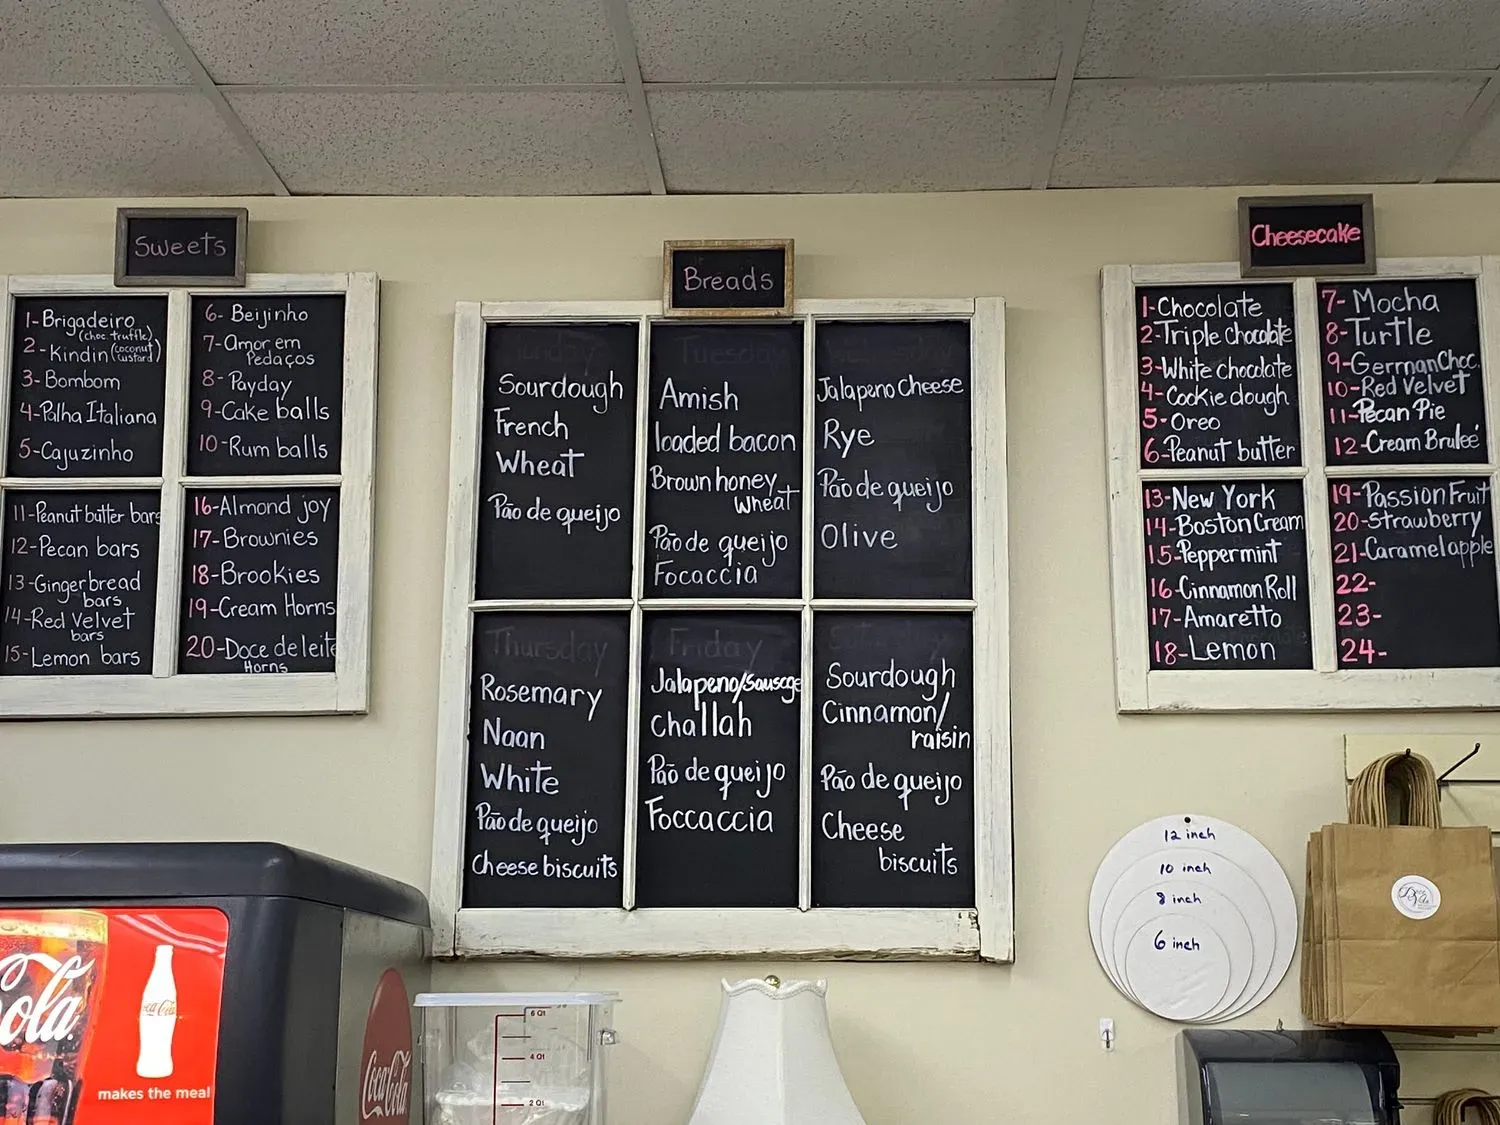 Sweets
1-Brigadeiro
(choc. truffle)
2-Kindin (coconut
custard)
3-Bombom
4-Palha Italiana
5-Cajuzinho
6-Beijinho
7-Amor em
Pedaços
8-Payday
9-Cake balls
10-Rum balls
11-Peanut butter bars
12-Pecan bars
13-Gingerbread
bars
14-Red Velvet
bars
15-Lemon bars
16-Almond joy
17-Brownies
18-Brookies
19-Cream Horns
20-Doce de leite
Horns
Breads
Sourdough
French
Wheat
Pão de queijo
Tuesday
Amish
loaded bacon
Brown honey
Wheat
Pão de queijo
Focaccia
Jalapeno Cheese
Rye
Pão de queijo
Olive
Thursday
Rosemary
Naan
White
Pão de queijo
Cheese biscuits
Friday
Jalapeno/sausage
Challah
Pão de queijo
Foccaccia
Sourdough
Cinnamon/
raisin
Pão de queijo
Cheese
biscuits
Cheesecake
1-Chocolate
2-Triple Chocolate
3-White chocolate
4-Cookie dough
5-Oreo
6-Peanut butter
7-Mocha
8-Turtle
9-German Choc.
10-Red Velvet
11-Pecan Pie
12-Cream Bruleé
13-New York
14-Boston Cream
15-Peppermint
16-Cinnamon Roll
17-Amaretto
18-Lemon
19-Passion Fruit
20-Strawberry
21-Caramel apple
22-
23-
24-
12 inch
10 inch
8 inch
6 inch
Cola
Coca-Cola
makes the meal
Coca-Cola
6 Qt
4 Qt
2 Qt